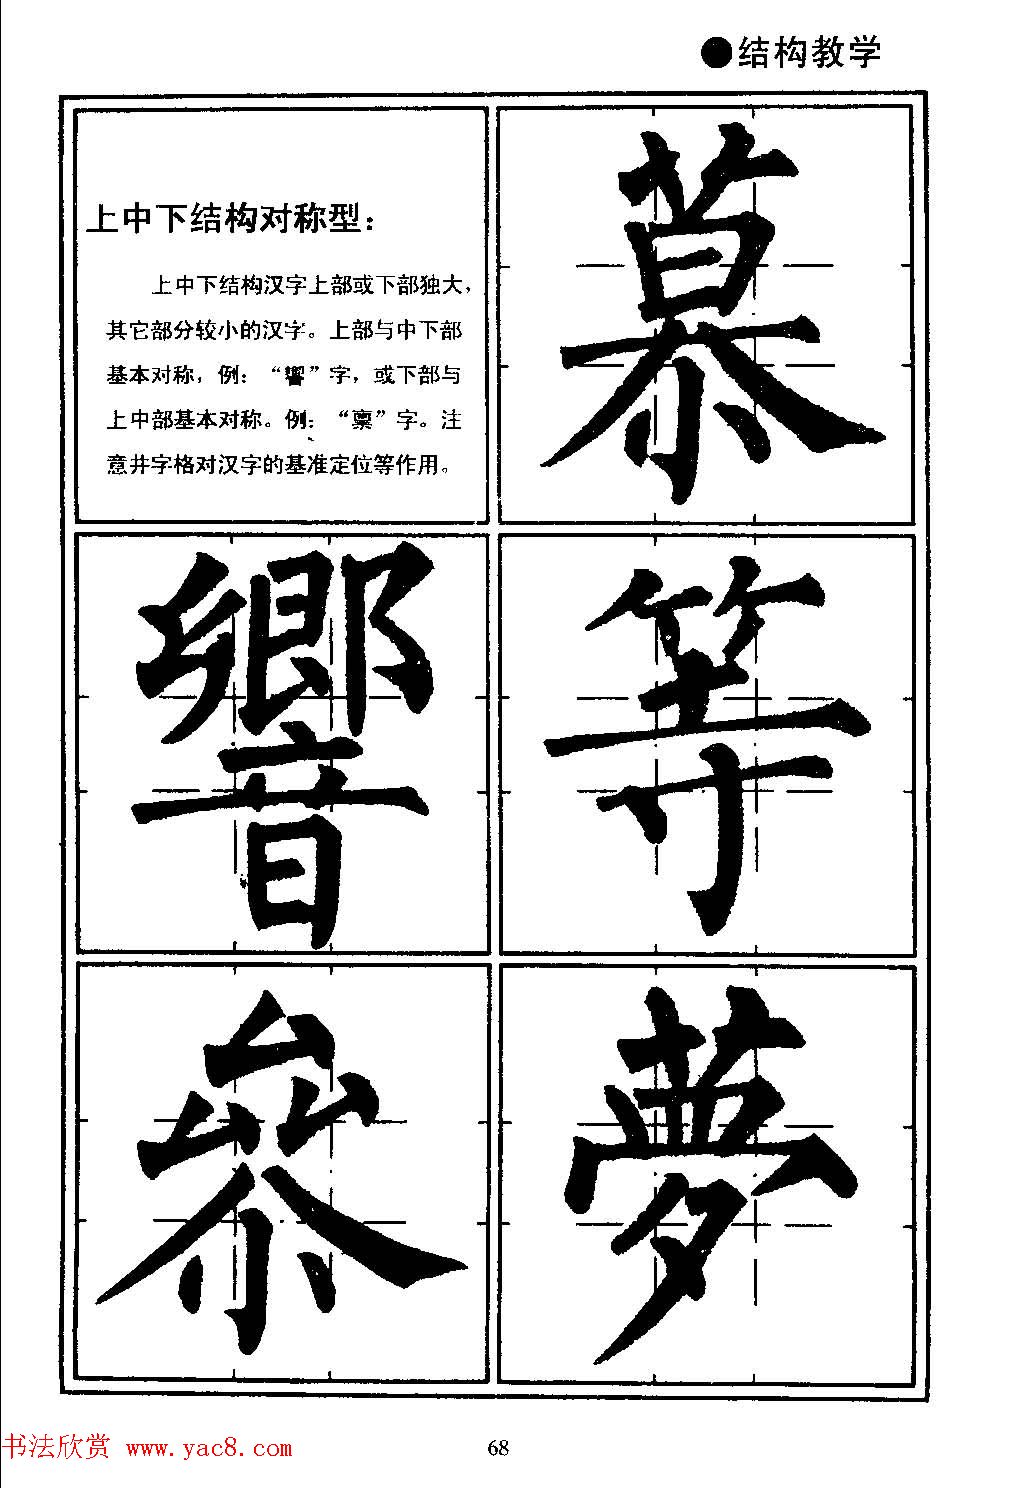 ●结构教学
上中下结构对称型：
上中下结构汉字上部或下部独大，
其它部分较小的汉字。上部与中下部
基本对称，例：“響”字，或下部与
上中部基本对称。例：“稟”字。注
意井字格对汉字的基准定位等作用。
慕
響
等
參
夢
书法欣赏 www.yac8.com
68